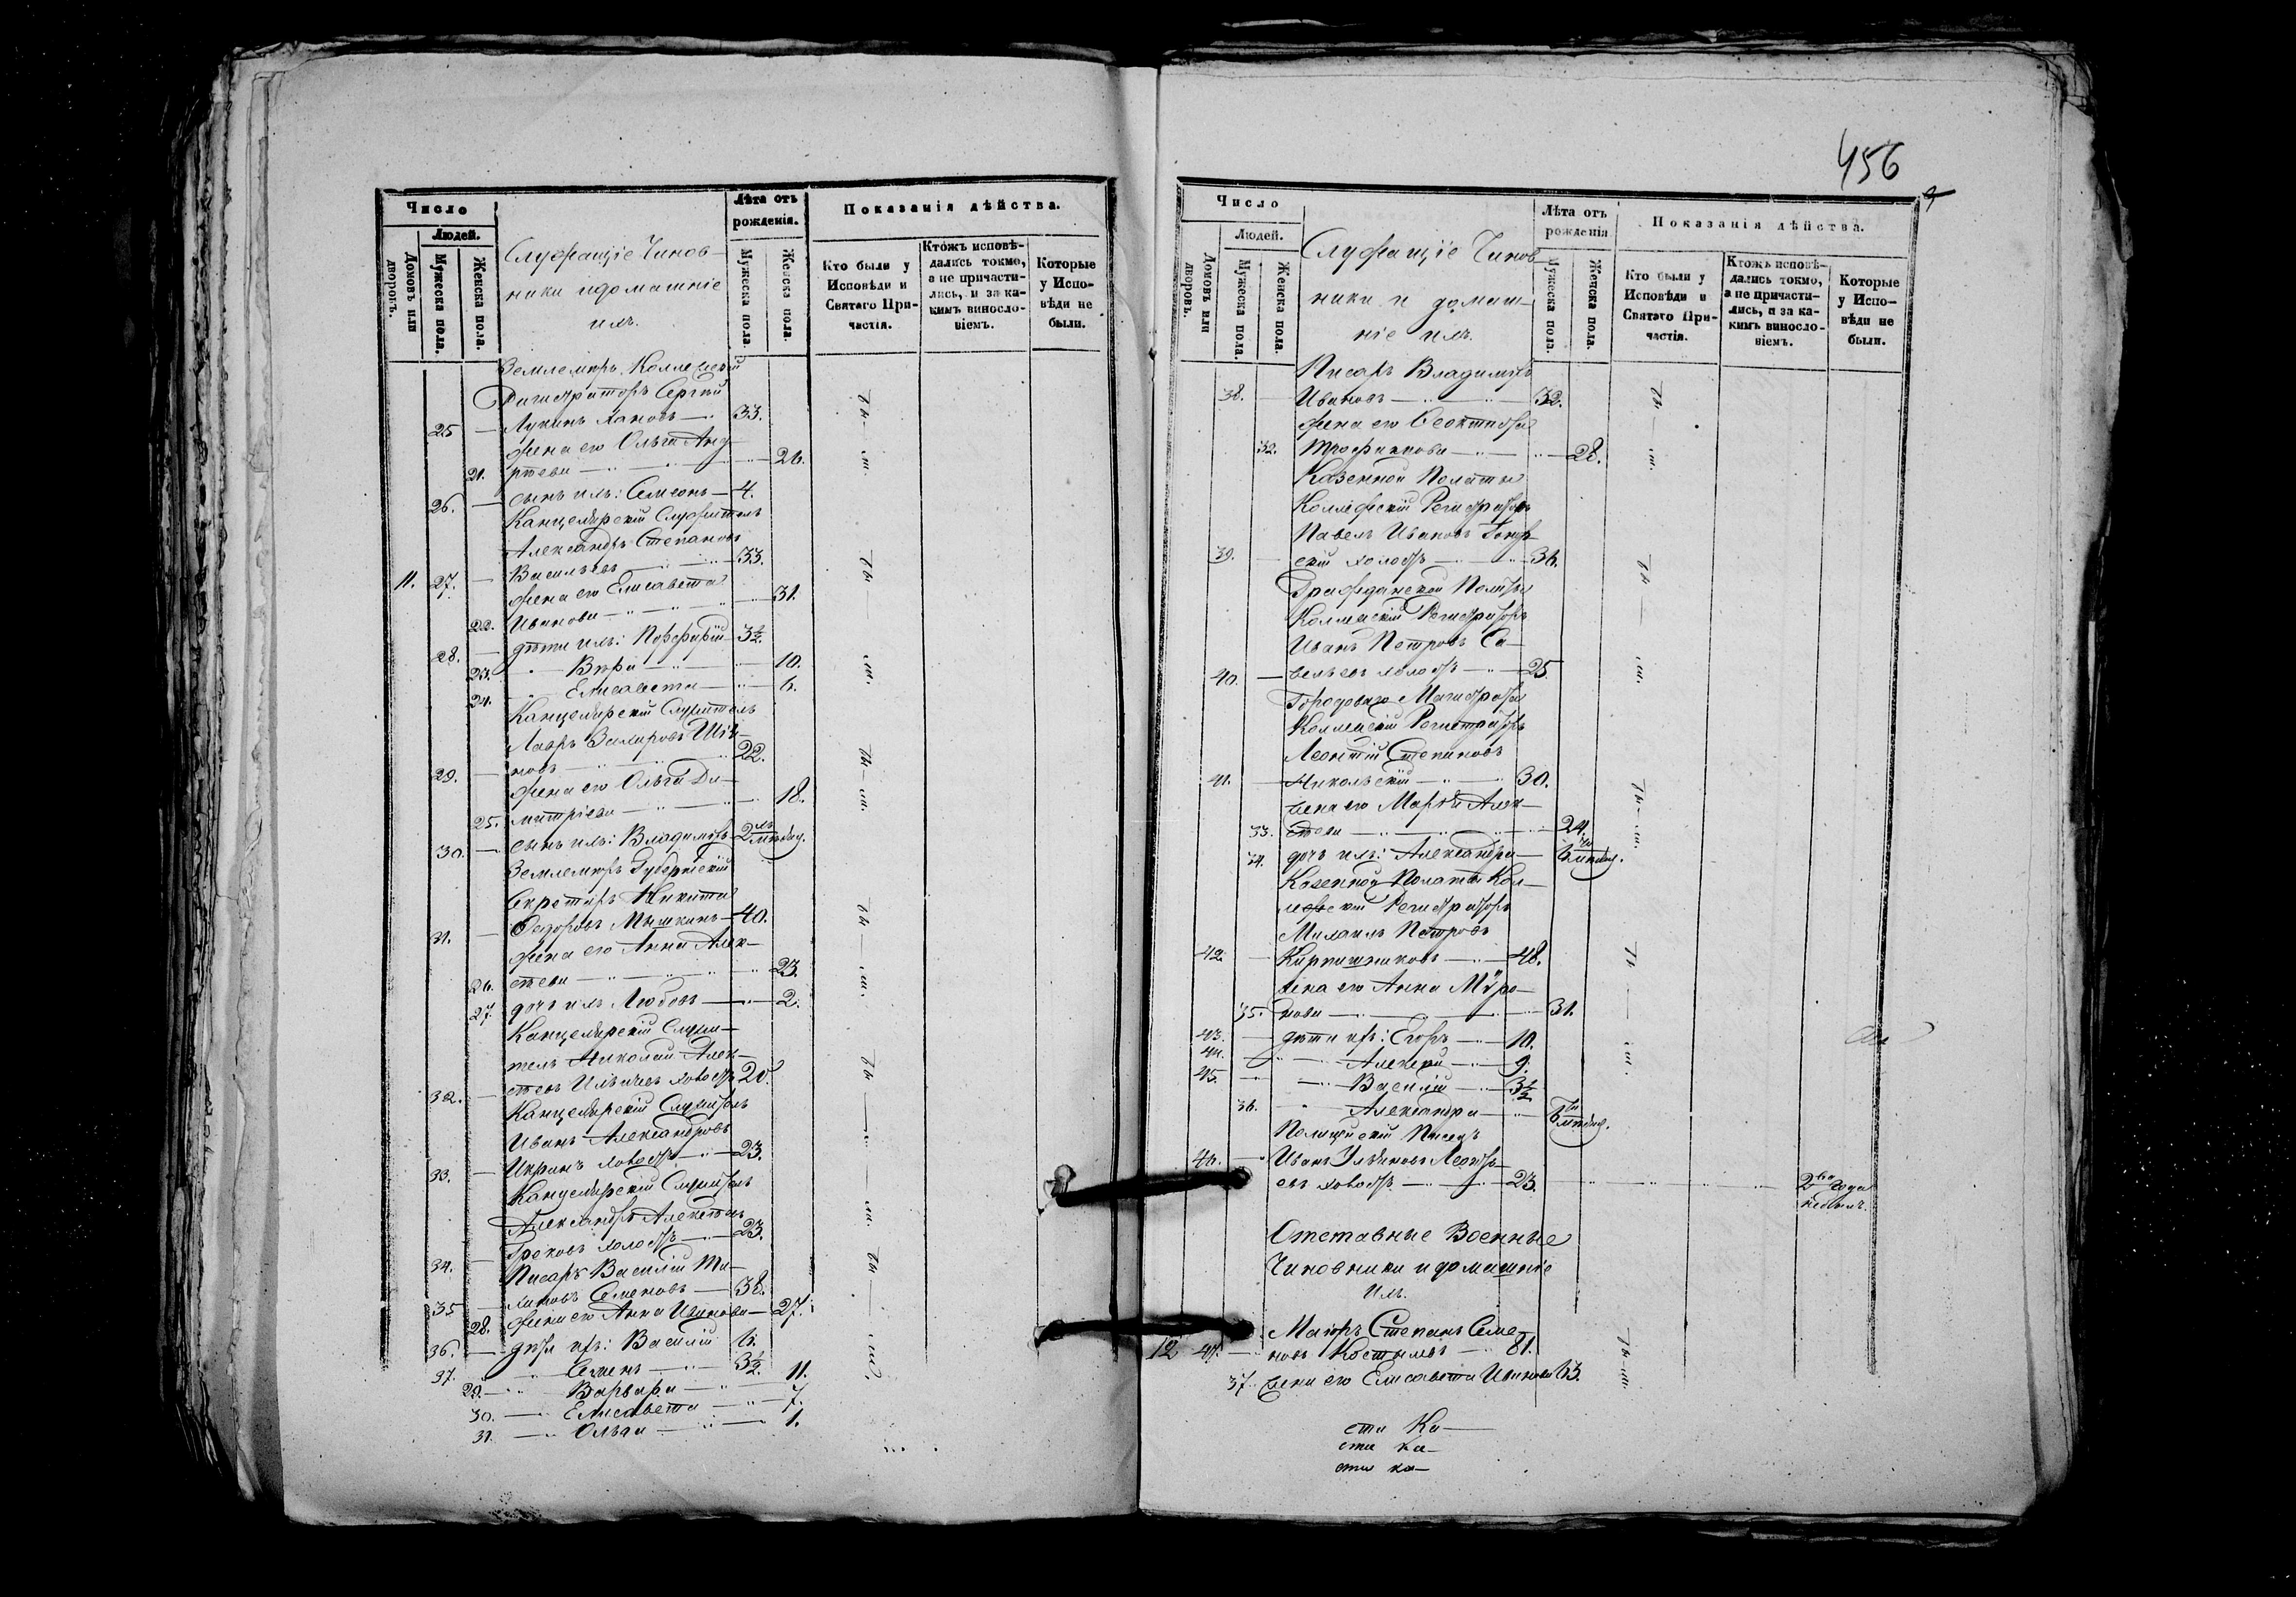 Число
Людей.
Домовъ или дворовъ.
Мужеска пола.
Женска пола.
Служащіе Чинов-
ники и домашніе
ихъ.
Лѣта отъ
рожденія.
Мужеска пола.
Женска пола.
Показанія дѣйства.
Кто были у
Исповѣди и
Святаго При-
частія.
Ктожъ исповѣ-
дались токмо,
а не причасти-
лись, и за ка-
кимъ винosло-
віемъ.
Которые
у Испо-
вѣди не
были.
Землемѣръ, Коллежскій
Регистраторъ Сергѣй
25 Лукинъ 33.
жена его Ольга Анд-
21. рѣева 26.
26. сынъ ихъ: Симеонъ 4.
Канцелярскій Служитель
Александръ Степановъ
11. 27. Васильевъ 33.
жена его Елисавета
22. Иванова 31.
28. дѣти ихъ: Порфирій 3½.
23. Вѣра 10.
24. Елисавета 6.
Канцелярскій Служитель
Лавръ
29. новъ 22.
жена его Ольга Ди-
25. митріева 18.
30. сынъ ихъ: Владимиръ 2
Землемѣръ Губернскій
Секретарь Никита
31. Федоровъ Мышкинъ 40.
жена его Анна Алек-
26. сѣева 23.
27. дочь ихъ Любовь 2.
Канцелярскій Служи-
тель Николай Алек-
32. сѣевъ холостъ 20.
Канцелярскій Служитель
Иванъ Александровъ
33. холостъ 23.
Канцелярскій Служитель
Александръ Алексѣевъ
34. Грековъ холостъ 23.
Писарь Василій Ти-
35 хановъ Семеновъ 38.
28. жена его Анна Иванова 27.
36. дѣти ихъ: Василій 6.
37. Семенъ 3½.
29. Варвара 11.
30. Елисавета 7.
31. Ольга 1.
456
Число
Людей.
Домовъ или дворовъ.
Мужеска пола.
Женска пола.
Служащіе Чинов-
ники и домаш-
ніе ихъ.
Лѣта отъ
рожденія
Мужеска пола.
Женска пола.
Показанія дѣйства.
Кто были у
Исповѣди и
Святаго При-
частія.
Ктожъ исповѣ-
дались токмо,
а не причасти-
лись, и за ка-
кимъ винosло-
віемъ.
Которые
у Испо-
вѣди не
были.
Писарь Владимиръ
38. Ивановъ 32.
жена его Феоктиста
32. Трофимова 28.
Казенной Палаты
Коллежскій Регистраторъ
Павелъ Ивановъ
39. скій холостъ 36.
Гражданской Палаты
Коллежскій Регистраторъ
Иванъ Петровъ Са-
40. вельевъ холостъ 25
Городоваго Магистрата
Коллежскій Регистраторъ
Леонтій Степановъ
41. Никольскій 30.
жена его Марья Алек-
33. сѣева 24.
34. дочь ихъ: Александра 6
Казенной Палаты Кол-
лежскій Регистраторъ
Михаилъ Петровъ
42. Кирпишниковъ 48.
жена его Анна Миро-
35. нова 31.
43. дѣти ихъ: Егоръ 10.
44. Алексѣй 9.
45. Василій 3½
36. Александра 6
Полицейскій Писецъ
46. Иванъ Ульяновъ
евъ холостъ 23. 2 года
небылъ.
Отставные Военные
Чиновники и домашніе
ихъ.
Маіоръ Степанъ Семе-
12 47. новъ Костылевъ 81.
37. жена его Елисавета Иванова 63.